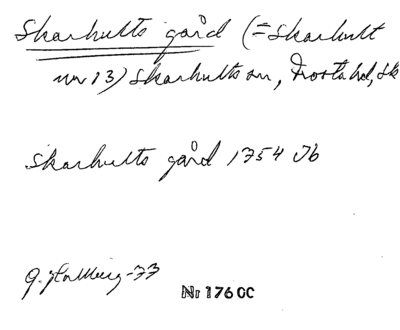 Skarhults gård (= Skarhult
nr 13) Skarhults sn, Frosta hd, Sk
Skarhults gård 1754 Jb
G. Hallberg -73
Nr 176 OC